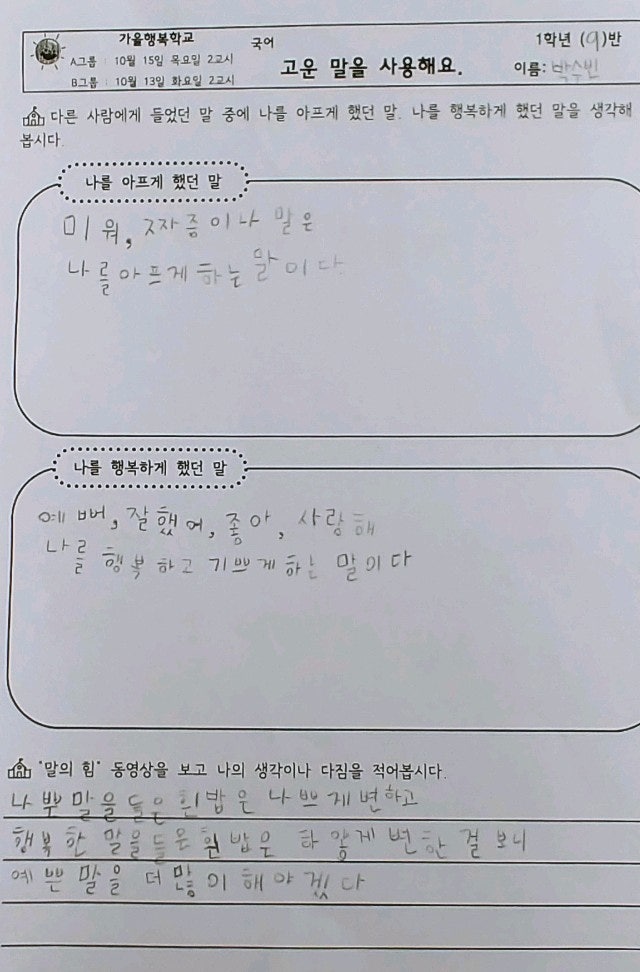 가을행복학교
국어
1학년 (9)반
A그룹 : 10월 15일 목요일 2교시
B그룹 : 10월 13일 화요일 2교시
고운 말을 사용해요.
이름: 박수빈
다른 사람에게 들었던 말 중에 나를 아프게 했던 말. 나를 행복하게 했던 말을 생각해
봅시다.
나를 아프게 했던 말
미워, 짜증이나 말은
나를 아프게 하는 말이다
나를 행복하게 했던 말
예뻐, 잘했어, 좋아, 사랑해
나를 행복하고 기쁘게 하는 말이다
"말의 힘" 동영상을 보고 나의 생각이나 다짐을 적어봅시다.
나뿐 말을 들은 흰밥은 나쁘게 변하고
행복한 말을 들은 흰밥은 하얗게 변한 걸 보니
예쁜 말을 더 많이 해야겠다